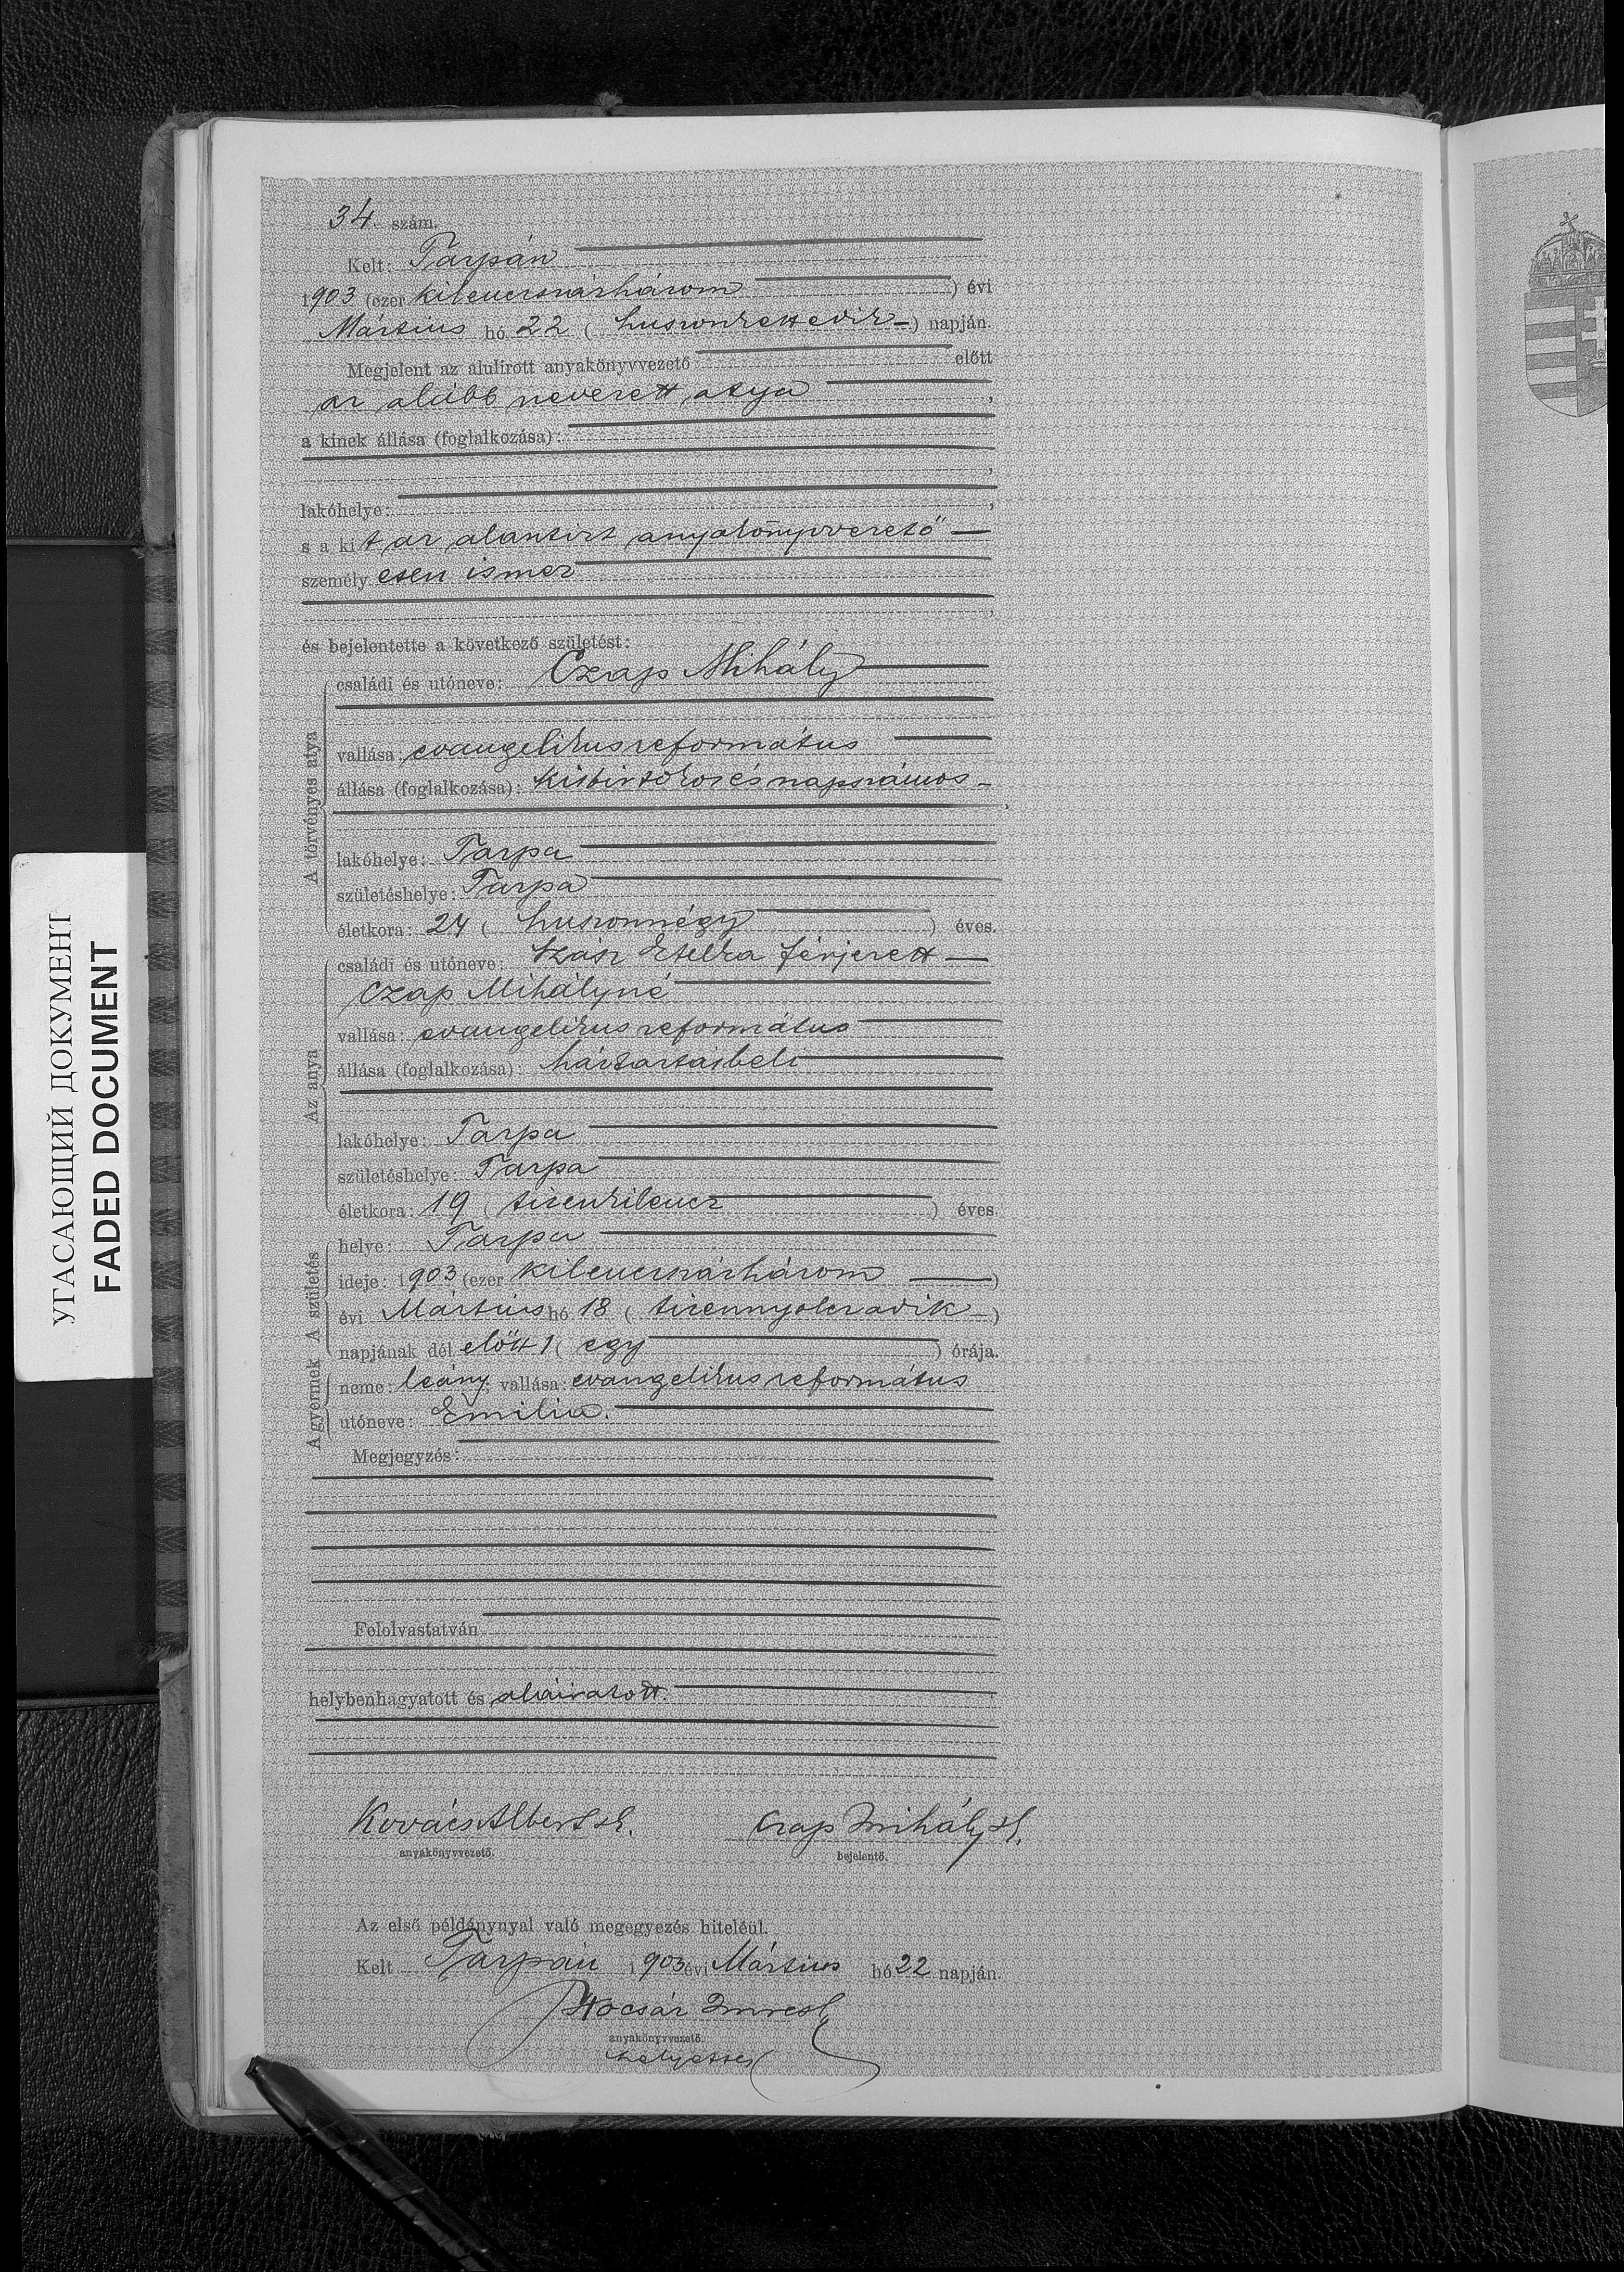 34. szám.
Kelt: Tarpán
1903 (ezer kilencszázhárom) évi
Március hó 22 (huszonkettedik) napján.
Megjelent az alulirott anyakönyvvezető előtt
az alább nevezett atya,
a kinek állása (foglalkozása):
lakóhelye:
s a kit az alantirt anyakönyvvezető
személyesen ismer
és bejelentette a következő születést:
A törvényes atya
családi és utóneve: Czap Mihály
vallása: evangelikus református
állása (foglalkozása): kisbirtokos és napszámos
lakóhelye: Tarpa
születéshelye: Tarpa
életkora: 24 (huszonnégy) éves.
Az anya
családi és utóneve: Szász Etelka férjezett
Czap Mihályné
vallása: evangelikus református
állása (foglalkozása): háztartásbeli
lakóhelye: Tarpa
születéshelye: Tarpa
életkora: 19 (tizenkilencz) éves.
A születés
helye: Tarpa
ideje: 1903 (ezer kilencszázhárom)
évi Március hó 18 (tizennyolczadik)
napjának dél előtt 1 (egy) órája.
A gyermek
neme: leány; vallása: evangelikus református
utóneve: Emilia.
Megjegyzés:
Felolvastatván
helybenhagyatott és aláiratott.
Kovács Albert sk. Czap Mihály sk.
anyakönyvvezető. bejelentő.
Az első példánynyal való megegyezés hiteléül.
Kelt Tarpán 1903 évi Március hó 22 napján.
Imre sk
anyakönyvvezető.
helyettes
УГАСАЮЩИЙ ДОКУМЕНТ
FADED DOCUMENT